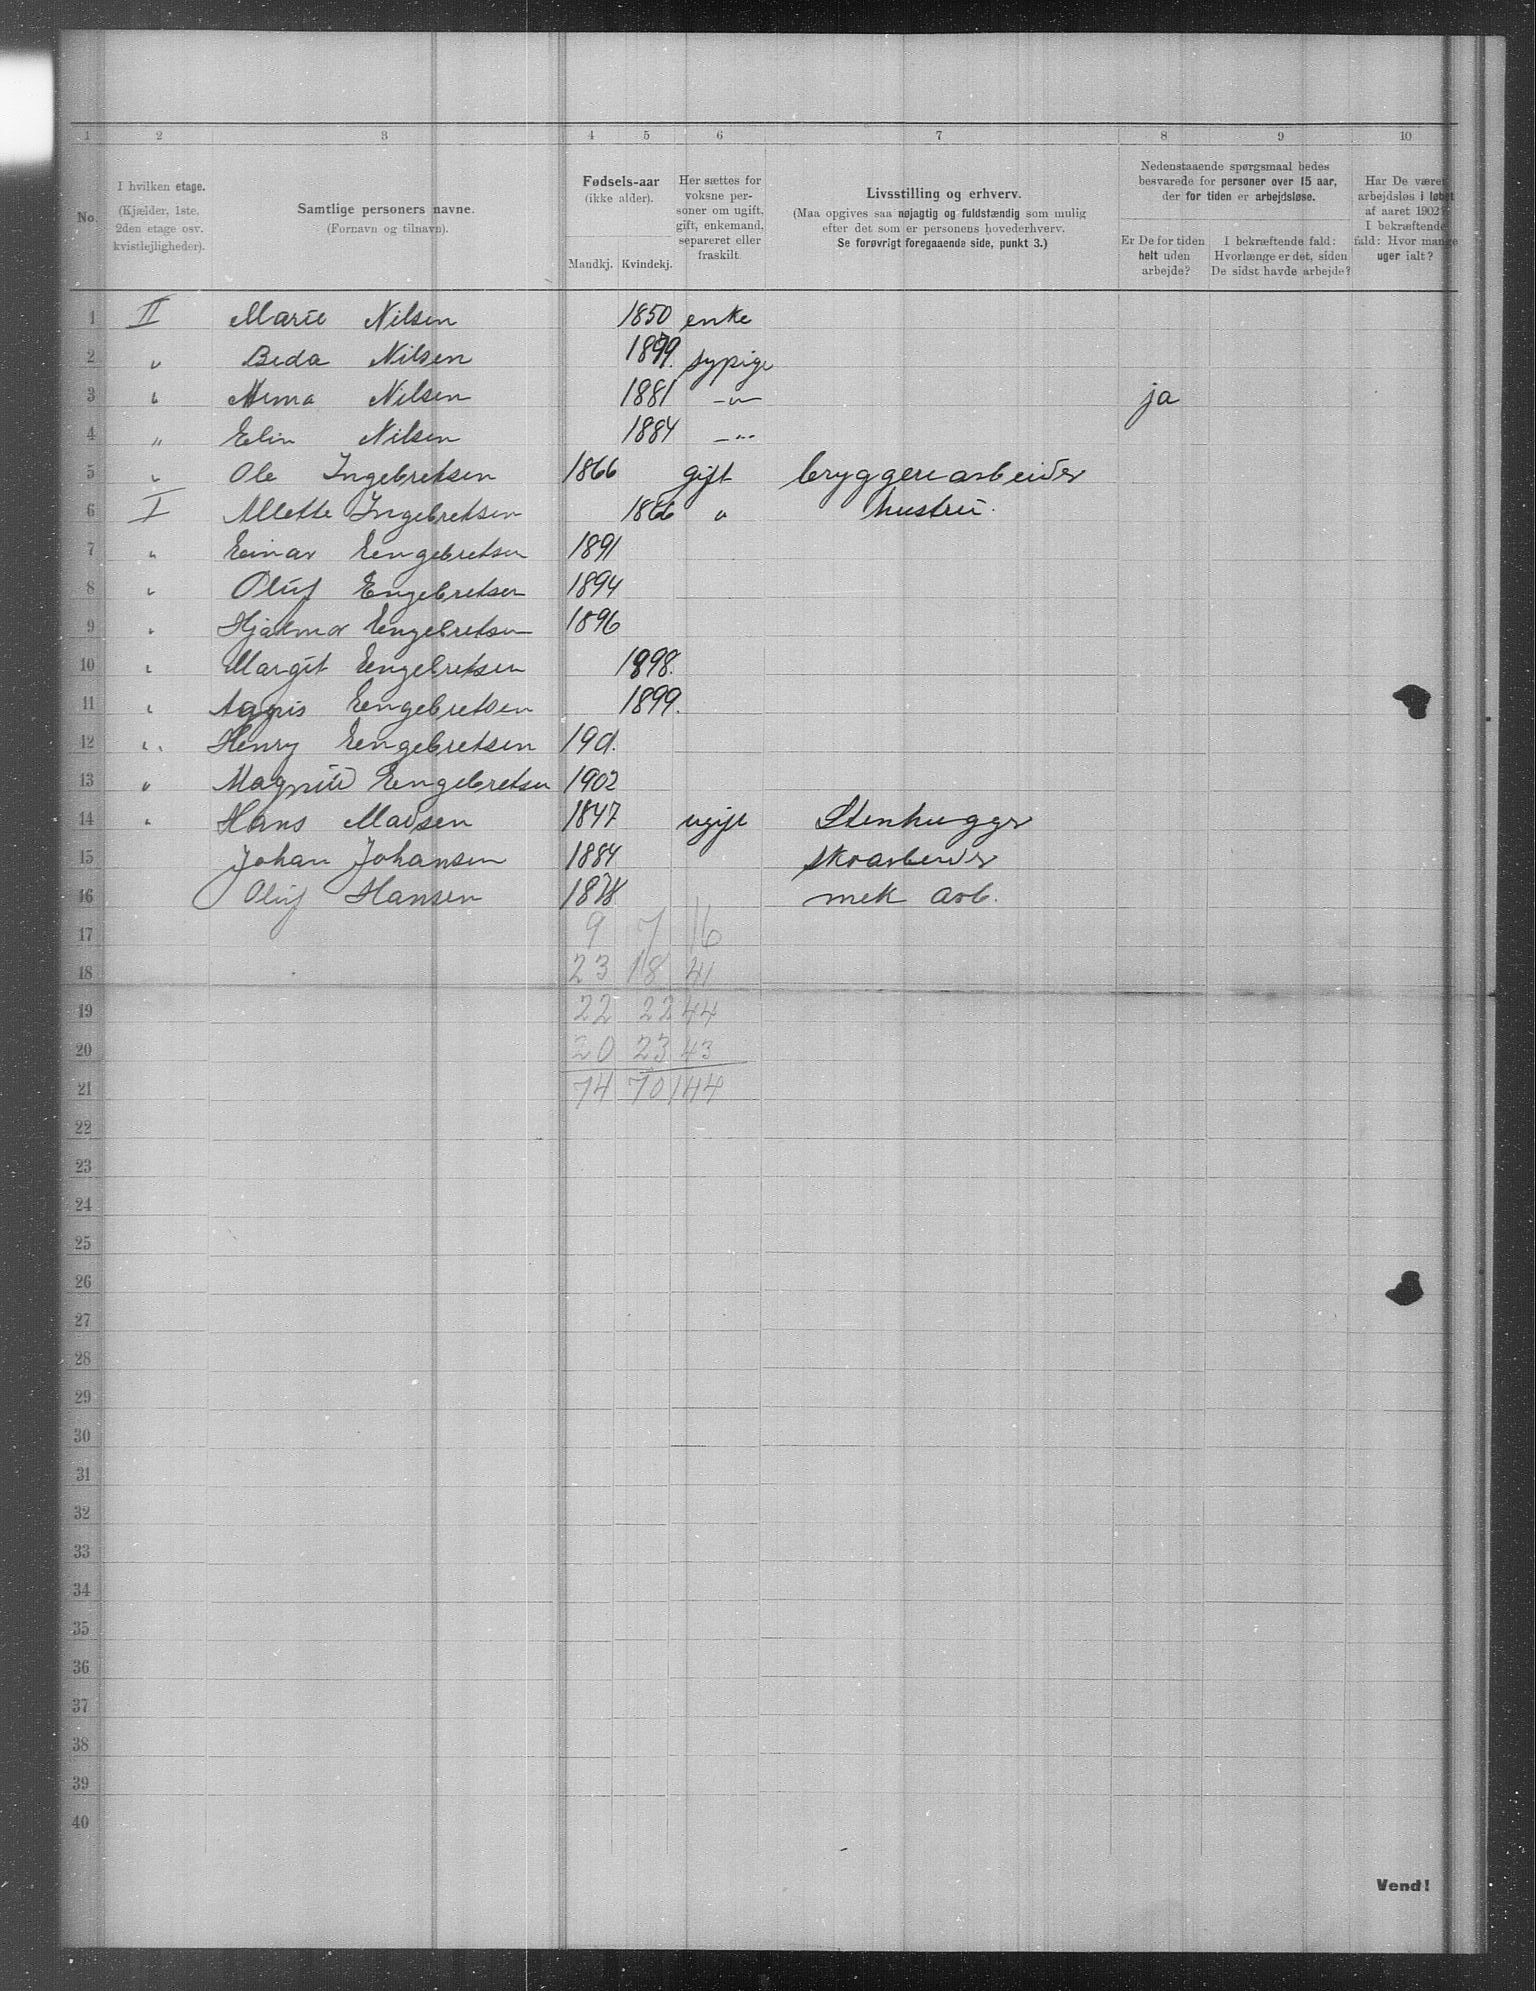 1 2 3 4 5 6 7 8 9 10
No.
I hvilken etage.
(Kjælder, 1ste.
2den etage osv.
kvistlejligheder).
Samtlige personers navne.
(Fornavn og tilnavn).
Fødsels-aar
(ikke alder).
Mandkj. Kvindekj.
Her sættes for
voksne per-
soner om ugift,
gift, enkemand,
separeret eller
fraskilt.
Livsstilling og erhverv.
(Maa opgives saa nøjagtig og fuldstændig som mulig
efter det som er personens hovederhverv.
Se forøvrigt foregaaende side, punkt 3.)
Nedenstaaende spørgsmaal bedes
besvarede for personer over 15 aar,
der for tiden er arbejdsløse.
Er De for tiden
helt uden
arbejde?
I bekræftende fald:
Hvorlænge er det, siden
De sidst havde arbejde?
Har De været
arbejdsløs i løbet
af aaret 1902?
I bekræftende
fald: Hvor mange
uger ialt?
1 II Marie Nilsen 1850 enke
2 " Beda Nilsen 1879. sypige
3 " Nilsen 1881 -"- ja
4 " Elin Nilsen 1884 -"-
5 " Ole Ingebretsen 1866 gift bryggeriarbeider
6 I Allette Ingebretsen 1866 " hustru.
7 " Einar Eengebretsen 1891
8 " Oluf Engebretsen 1894
9 " Hjalmar Eengebretsen 1896
10 " Margit Eengebretsen 1898.
11 " Agnis Eengebretsen 1899.
12 " Henry Eengebretsen 1901.
13 " Eengebretsen 1902
14 " Hans Madsen 1847 ugift Stenhugger
15 Johan Johansen 1884 skoarbeider
16 Oluf Hansen 1878 mek arb.
17 9 7 16
18 23 18 41
19 22 22 44
20 20 23 43
21 74 70 144
22
23
24
25
26
27
28
29
30
31
32
33
34
35
36
37
38
39
40
Vend!